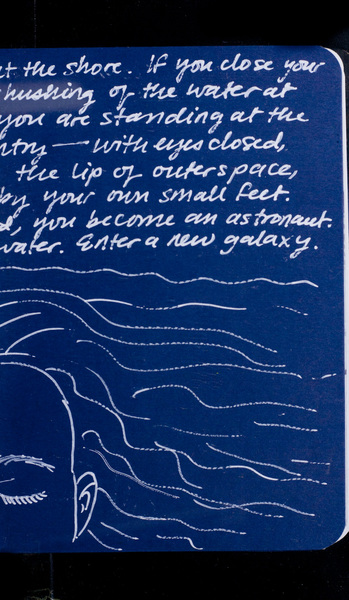 at the shore. If you close your
hushing of the water at
you are standing at the
ntry — with eyes closed,
the lip of outer space,
by your own small feet.
d, you become an astronaut.
water. Enter a new galaxy.